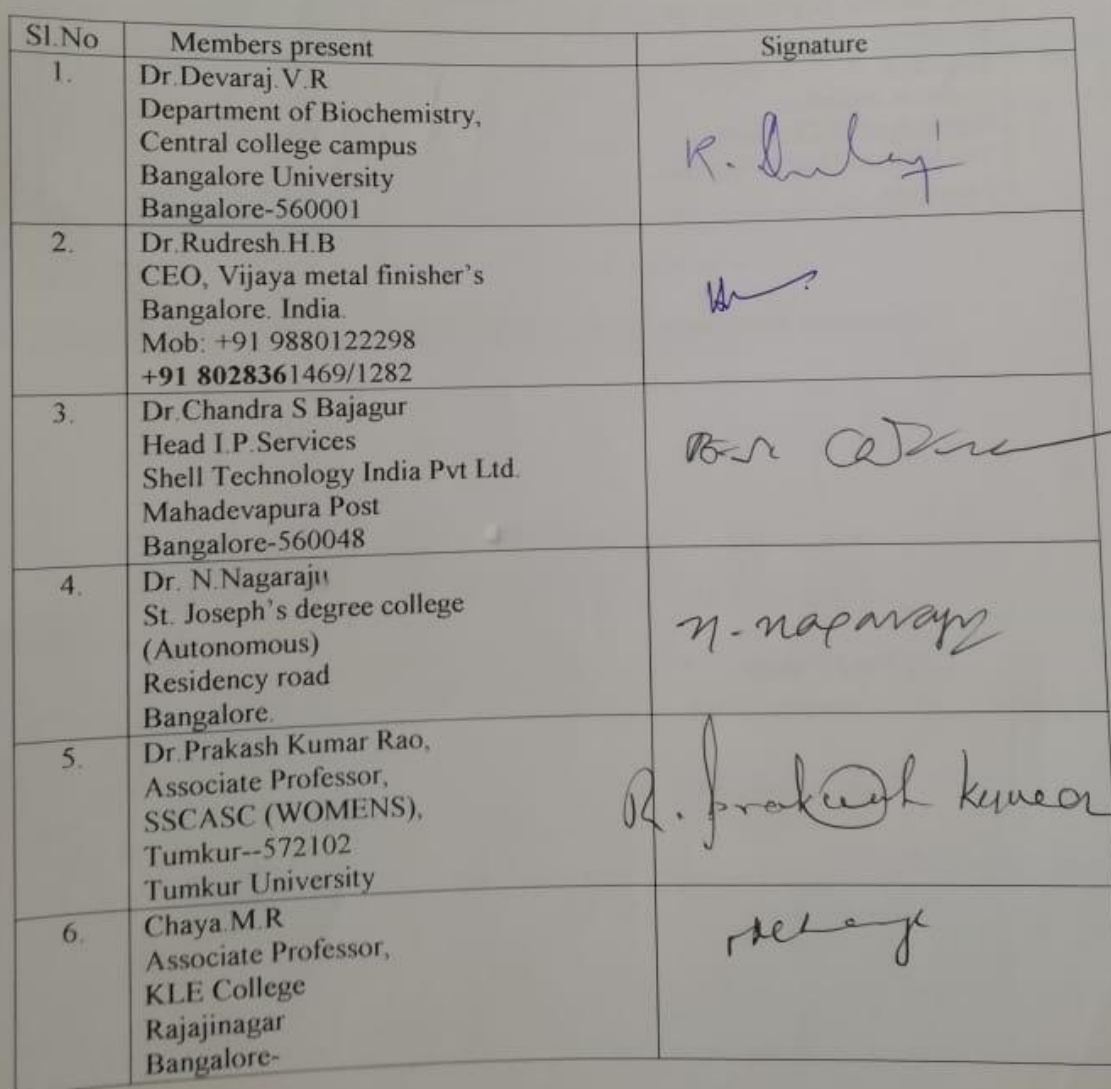 Sl.No Members present Signature
1. Dr.Devaraj.V.R
Department of Biochemistry,
Central college campus
Bangalore University
Bangalore-560001
K.
2. Dr.Rudresh.H.B
CEO, Vijaya metal finisher's
Bangalore. India.
Mob: +91 9880122298
+91 8028361469/1282
3. Dr.Chandra S Bajagur
Head I.P.Services
Shell Technology India Pvt Ltd.
Mahadevapura Post
Bangalore-560048
4. Dr. N.Nagaraju
St. Joseph's degree college
(Autonomous)
Residency road
Bangalore.
n. nagaraju
5. Dr.Prakash Kumar Rao,
Associate Professor,
SSCASC (WOMENS),
Tumkur--572102
Tumkur University
R. Prakash Kumar
6. Chaya.M.R
Associate Professor,
KLE College
Rajajinagar
Bangalore-